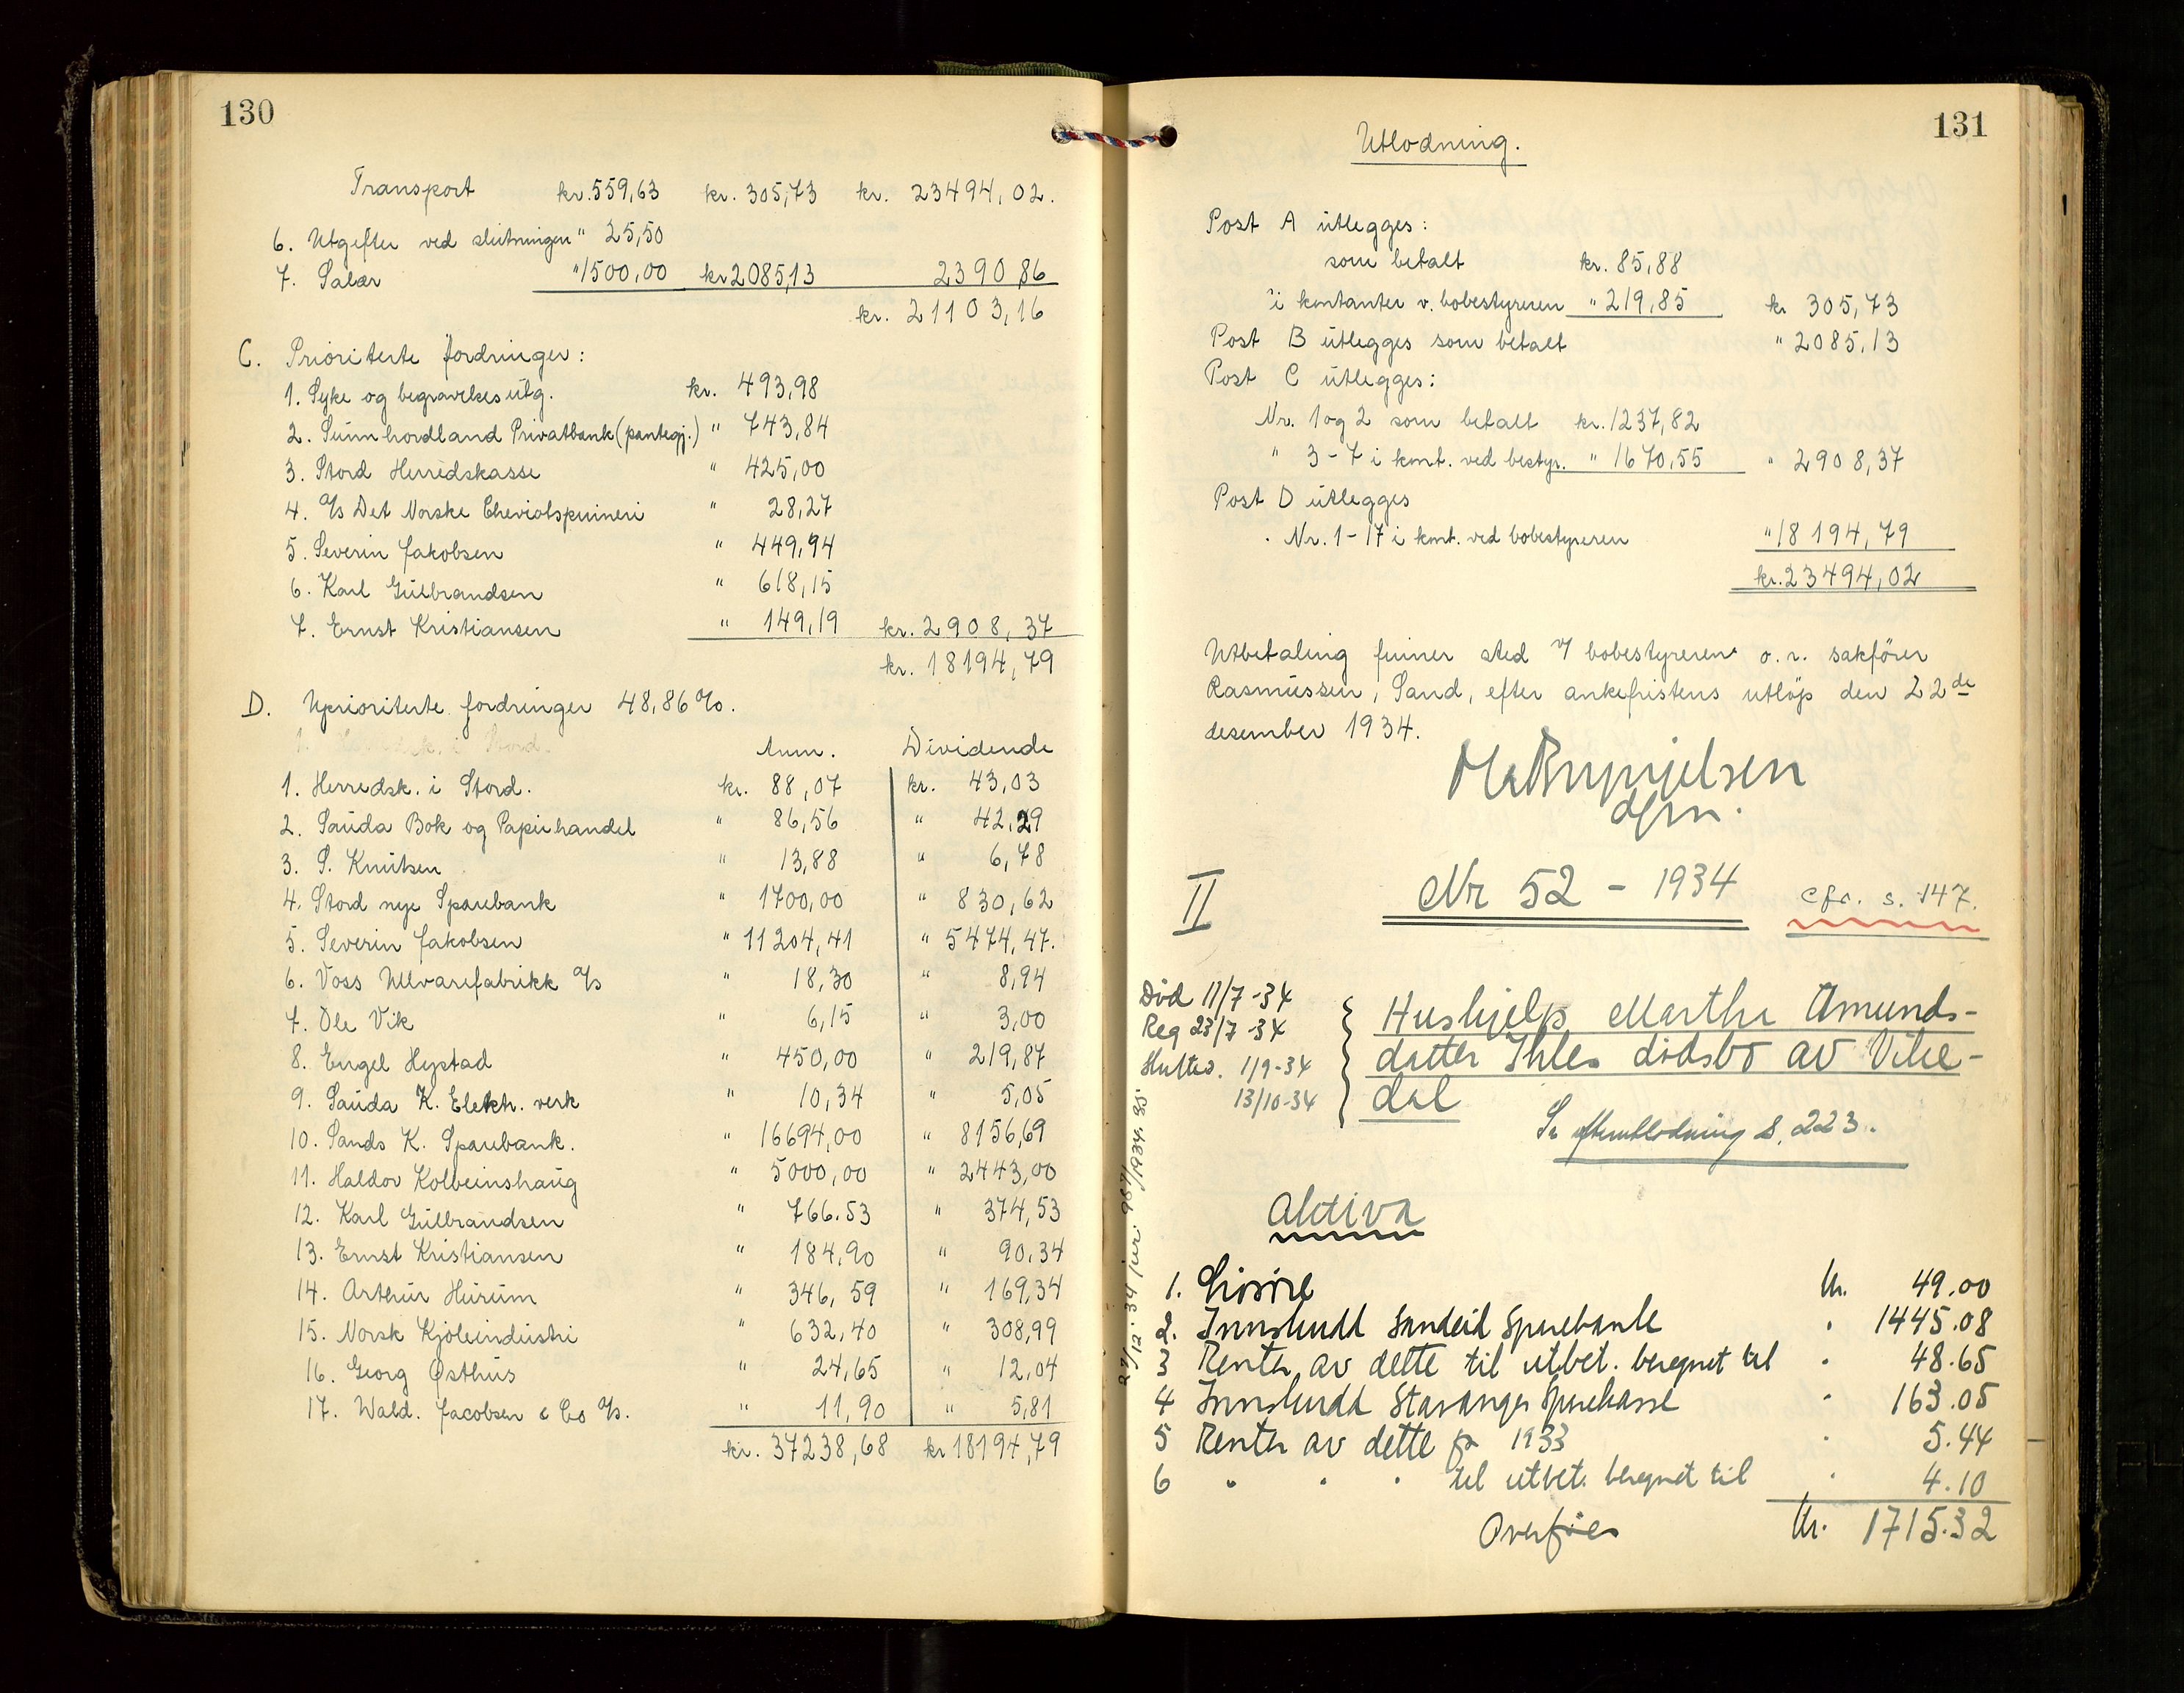 130
Transport kr. 559,63 kr. 305,73 kr. 23494,02.
6. Utgifter ved slutningen " 25,50
7. Salær " 1500,00 kr 2085,13 2390,86
kr. 21103,16
C. Prioriterte fordringer:
1. Syke og begravelsesutg. kr. 493,98
2. Sunnhordland Privatbank (pantegj.) " 743,84
3. Stord Herredskasse " 425,00
4. A/s Det Norske Cheviotspinneri " 28,27
5. Severin Jakobsen " 449,94
6. Karl Gulbrandsen " 618,15
7. Ernst Kristiansen " 149,19 kr. 2908,37
kr. 18194,79
D. Uprioriterte fordringer 48,86%.
Anm. Dividende
1. Herredsk. i Stord. kr. 88,07 kr. 43,03
2. Sauda Bok og Papirhandel " 86,56 " 42,29
3. S. Knutsen " 13,88 " 6,78
4. Stord nye Sparebank " 1700,00 " 830,62
5. Severin Jakobsen " 11204,41 " 5474,47.
6. Voss Ullvarefabrikk A/s " 18,30 " 8,94
7. Ole Vik " 6,15 " 3,00
8. Engel Hystad " 450,00 " 219,87
9. Sauda K. Elektr. verk " 10,34 " 5,05
10. Sands K. Sparebank. " 16694,00 " 8156,69
11. Haldor Kolbeinshaug " 5000,00 " 2443,00
12. Karl Gulbrandsen " 766.53 " 374,53
13. Ernst Kristiansen " 184,90 " 90,34
14. Arthur Hurum " 346,59 " 169,34
15. Norsk Kjøleindustri " 632,40 " 308,99
16. Georg Østhus " 24,65 " 12,04
17. Wald. Jacobsen & Co A/s. " 11,90 " 5,81
kr. 37238,68 kr 18194,79
131
Utlodning.
Post A utlegges:
som betalt kr. 85,88
i kontanter v. bobestyreren " 219,85 kr 305,73
Post B utlegges som betalt " 2085,13
Post C utlegges:
Nr. 1 og 2 som betalt kr. 1237,82
" 3-7 i kont. ved bestyr. " 1670,55 " 2908,37
Post D utlegges
Nr. 1-17 i kont. ved bobestyreren " 18194,79
kr. 23494,02
Utbetaling finner sted v/ bobestyreren o.r. sakfører
Rasmussen, Sand, efter ankefristens utløp den 22de
desember 1934.
dfm.
II Nr 52 - 1934 cfr. s. 147.
Død 11/7-34
Reg 23/7-34
1/9-34
13/10-34
Hushjelp Marthe Amunds-
datter Ihles dødsbo av Vike-
dal
Se efterutlodning s. 223.
Aktiva
1. Løsøre Kr. 49.00
2. Innskudd Sandeid Sparebank " 1445.08
3 Renter av dette til utbet. beregnet til " 48.65
4 Innskudd Stavanger Sparekasse " 163.05
5 Renter av dette for 1933 " 5.44
6 " " " til utbet. beregnet til " 4.10
Overføres Kr. 1715.32